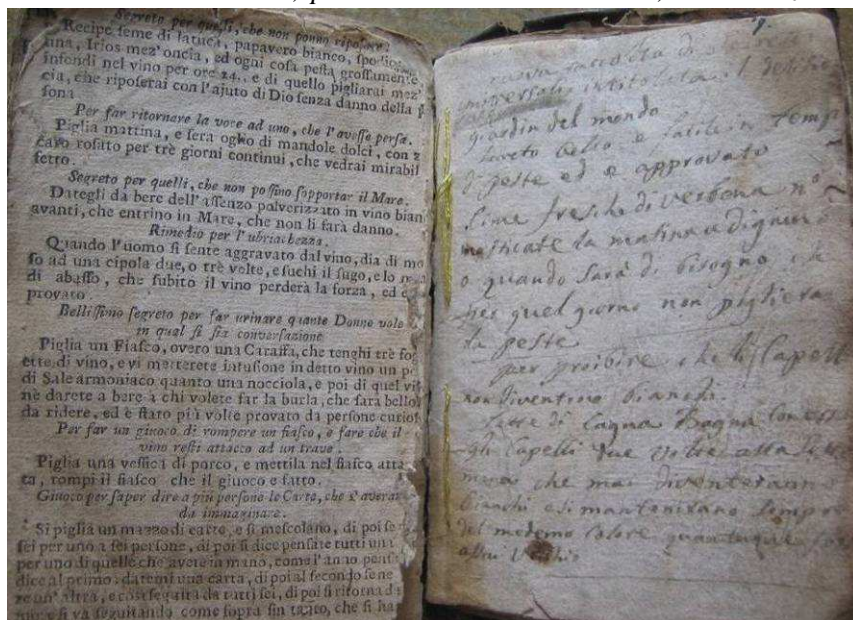 Segreto per quelli, che non ponno riposare.
Recipe seme di latuca, papavero bianco,
Irios mez' oncia, ed ogni cosa pesta grossamente
infondi nel vino per ore 24., e di quello pigliarai mez'
cia, che riposerai con l'ajuto di Dio senza danno della
sona.
Per far ritornare la voce ad uno, che l'avesse persa.
Piglia mattina, e sera oglio di mandole dolci, con z
caro rosato per trè giorni continui, che vedrai mirabil
fetto.
Segreto per quelli, che non possino sopportar il Mare.
Dategli da bere dell' assenzo polverizzato in vino bian
avanti, che entrino in Mare, che non li farà danno.
Rimedio per l'ubriachezza.
Quando l'uomo si sente aggravato dal vino, dia di mo
so ad una cipola due, o trè volte, e suchi il sugo, e lo
di abasso, che subito il vino perderà la forza, ed è
provato.
Bellissimo segreto per far urinare quante Donne vole
in qual si sia conversazione
Piglia un Fiasco, overo una Caraffa, che tenghi trè fog
ette di vino, e vi metterete infusione in detto vino un p
di Sale armoniaco quanto una nocciola, e poi di quel vi
nè darete a bere a chi volete far la burla, che sarà bello
da ridere, ed è stato più volte provato da persone curios
Per far un giuoco di rompere un fiasco, e fare che il
vino resti attacco ad un trave.
Piglia una vessica di porco, e mettila nel fiasco atta
ta, rompi il fiasco che il giuoco e fatto.
Giuoco per saper dire a più persone le Carte, che s'averan
da immaginare.
Si piglia un mazzo di carte, e si mescolano, di poi se
sei per uno a sei persone, di poi si dice pensate tutti una
per uno di quelle che avete in mano, come l'anno pens
dice al primo: datemi una carta, di poi al secondo sene
ze un' altra, e così seguita da tutti sei, di poi si ritorna d
e si va seguitando come sopra sin tanto, che si ha
nuova racolta di
universali intitolata il
giardin del mondo
Secreto bello e in temp
di peste ed è approvato
Cime fresche di verbena n°
masticate la matina a digiuno
o quando sarà di bisogno che
per quel giorno non pigliera
la peste
per proibire che li Capelli
non diventino bianchi
Latte di Cagna Bagna con esso
gli Capelli due volte alla
mana che mai diventerann
bianchi e si manteniranno sempre
del medemo Colore quantunque